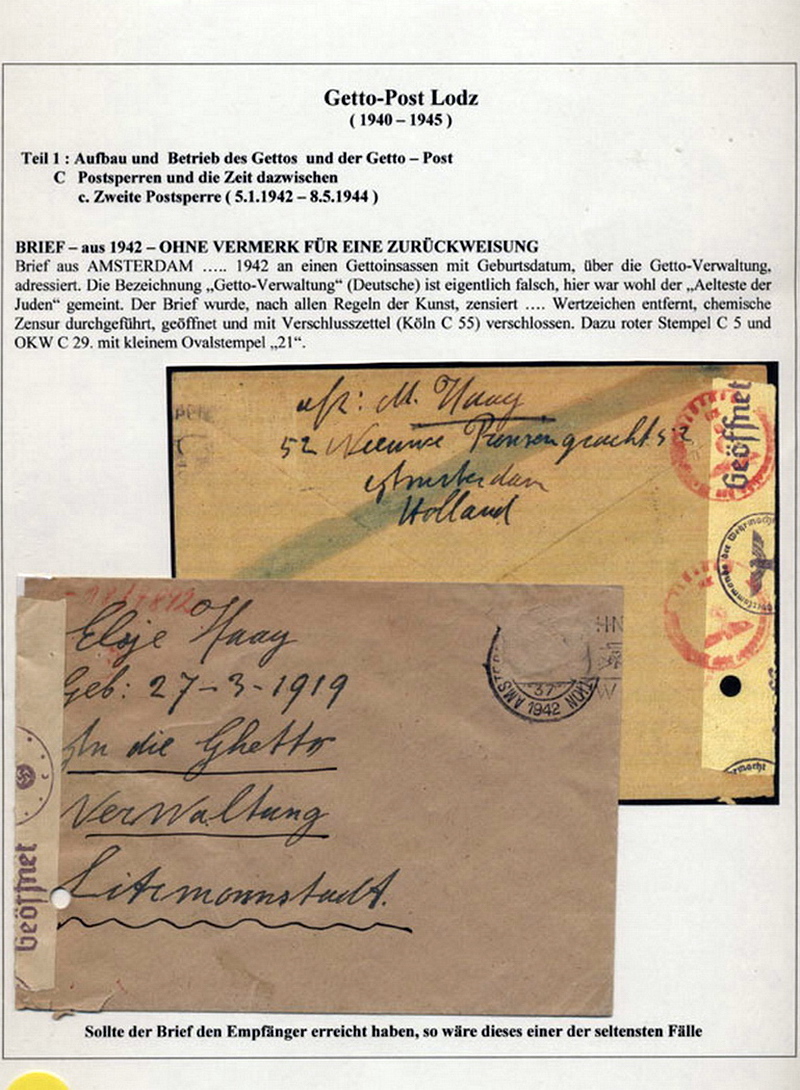 Getto-Post Lodz
( 1940 – 1945 )
Teil 1 : Aufbau und Betrieb des Gettos und der Getto – Post
C Postsperren und die Zeit dazwischen
c. Zweite Postsperre ( 5.1.1942 – 8.5.1944 )
BRIEF – aus 1942 – OHNE VERMERK FÜR EINE ZURÜCKWEISUNG
Brief aus AMSTERDAM ..... 1942 an einen Gettoinsassen mit Geburtsdatum, über die Getto-Verwaltung,
adressiert. Die Bezeichnung „Getto-Verwaltung“ (Deutsche) ist eigentlich falsch, hier war wohl der „Aelteste der
Juden“ gemeint. Der Brief wurde, nach allen Regeln der Kunst, zensiert .... Wertzeichen entfernt, chemische
Zensur durchgeführt, geöffnet und mit Verschlusszettel (Köln C 55) verschlossen. Dazu roter Stempel C 5 und
OKW C 29. mit kleinem Ovalstempel „21“.
M. Haag
52 Nieuwe
Amsterdam
Holland
Geöffnet
Elsje Haag
Geb: 27-3-1919
In die Ghetto
Verwaltung
Litzmannstadt.
Geöffnet
37
1942
Sollte der Brief den Empfänger erreicht haben, so wäre dieses einer der seltensten Fälle